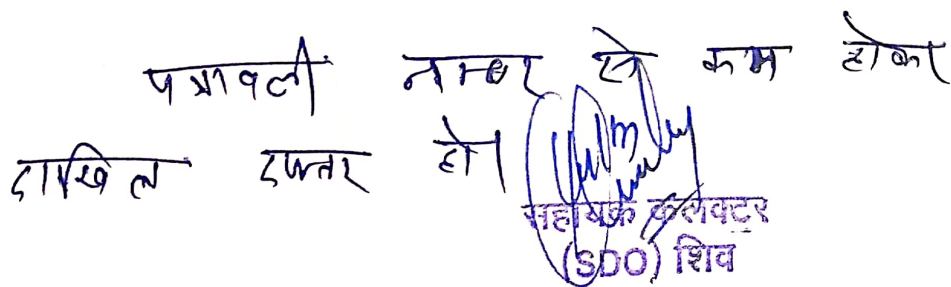 पत्रावली नम्बर से कम होकर
दाखिल दफ्तर हो।
सहायक कलेक्टर
(SDO) शिव